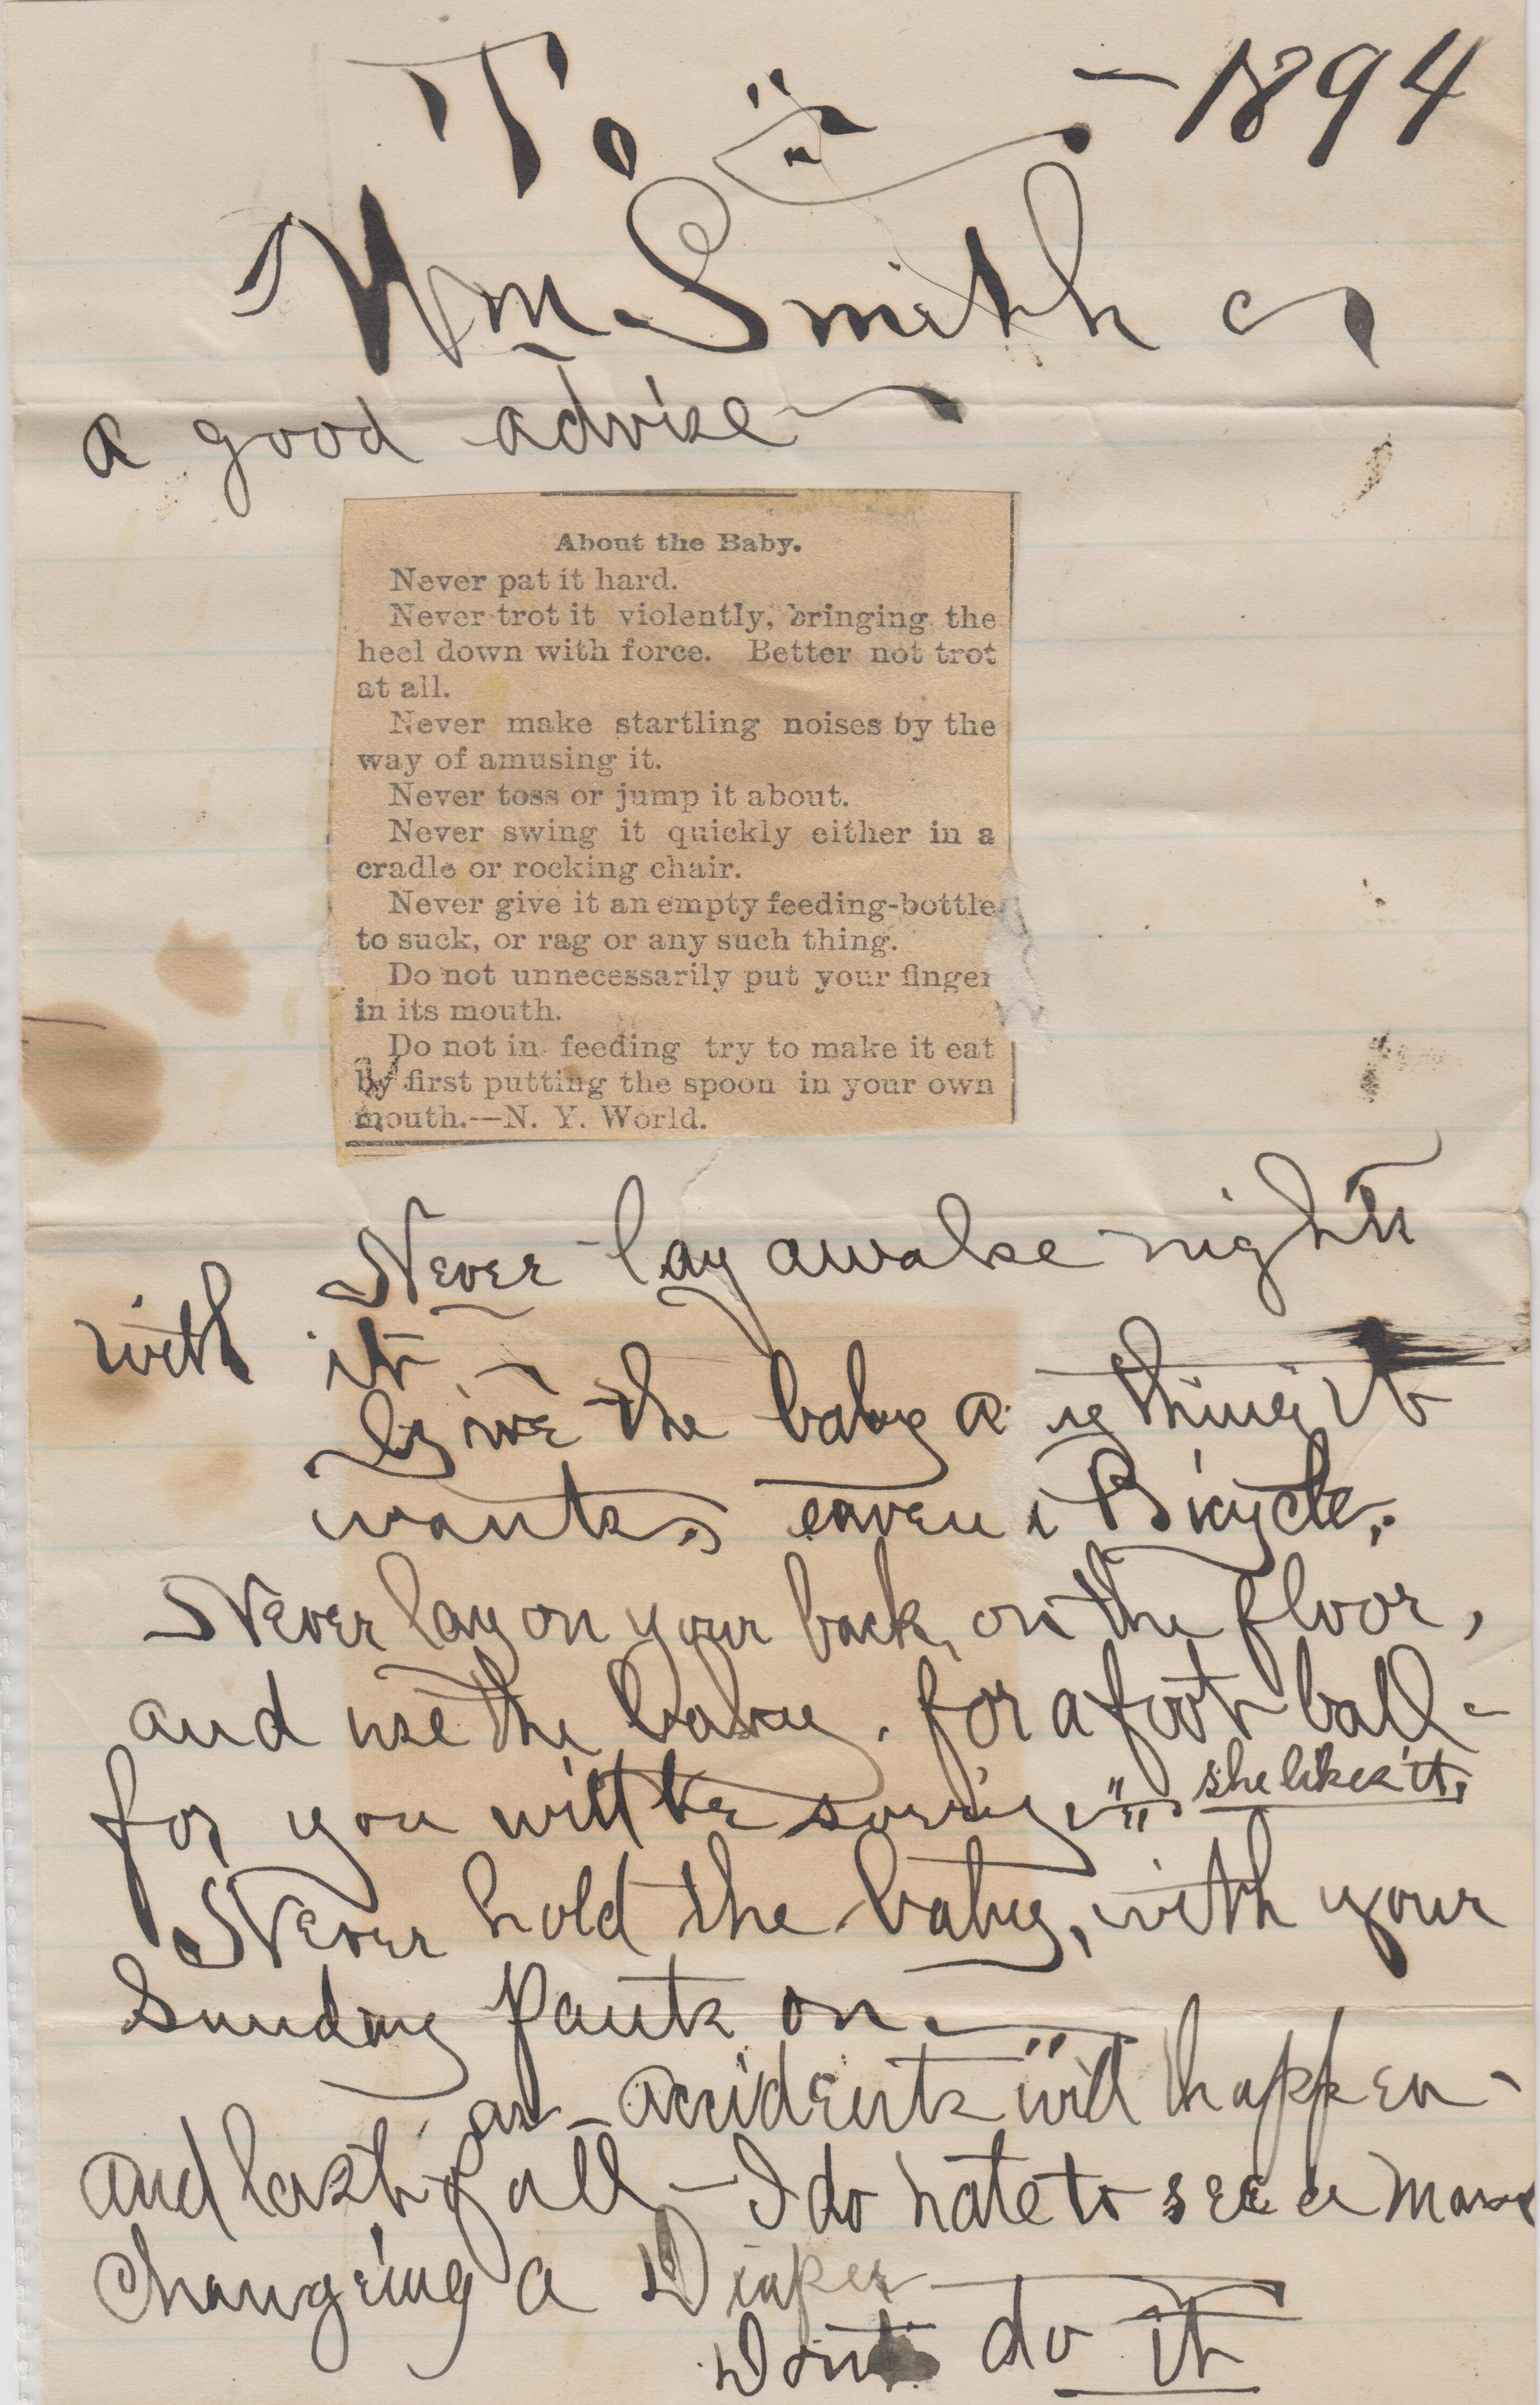 To — 1894
Wm Smith
a good advise
About the Baby.
Never pat it hard.
Never trot it violently, bringing the
heel down with force. Better not trot
at all.
Never make startling noises by the
way of amusing it.
Never toss or jump it about.
Never swing it quickly either in a
cradle or rocking chair.
Never give it an empty feeding-bottle
to suck, or rag or any such thing.
Do not unnecessarily put your finger
in its mouth.
Do not in feeding try to make it eat
by first putting the spoon in your own
mouth.—N. Y. World.
Never lay awake nights
with it
Give the baby a y thing it
wants, eaven a Bicycle.
Never lay on your back, on the floor,
and use the baby, for a foot ball -
for you will be sorry she likes it,
Never hold the baby, with your
Sunday Pants on
as accidents will happen -
and last of all - I do hate to see a man
changeing a Diaper
Dont do it